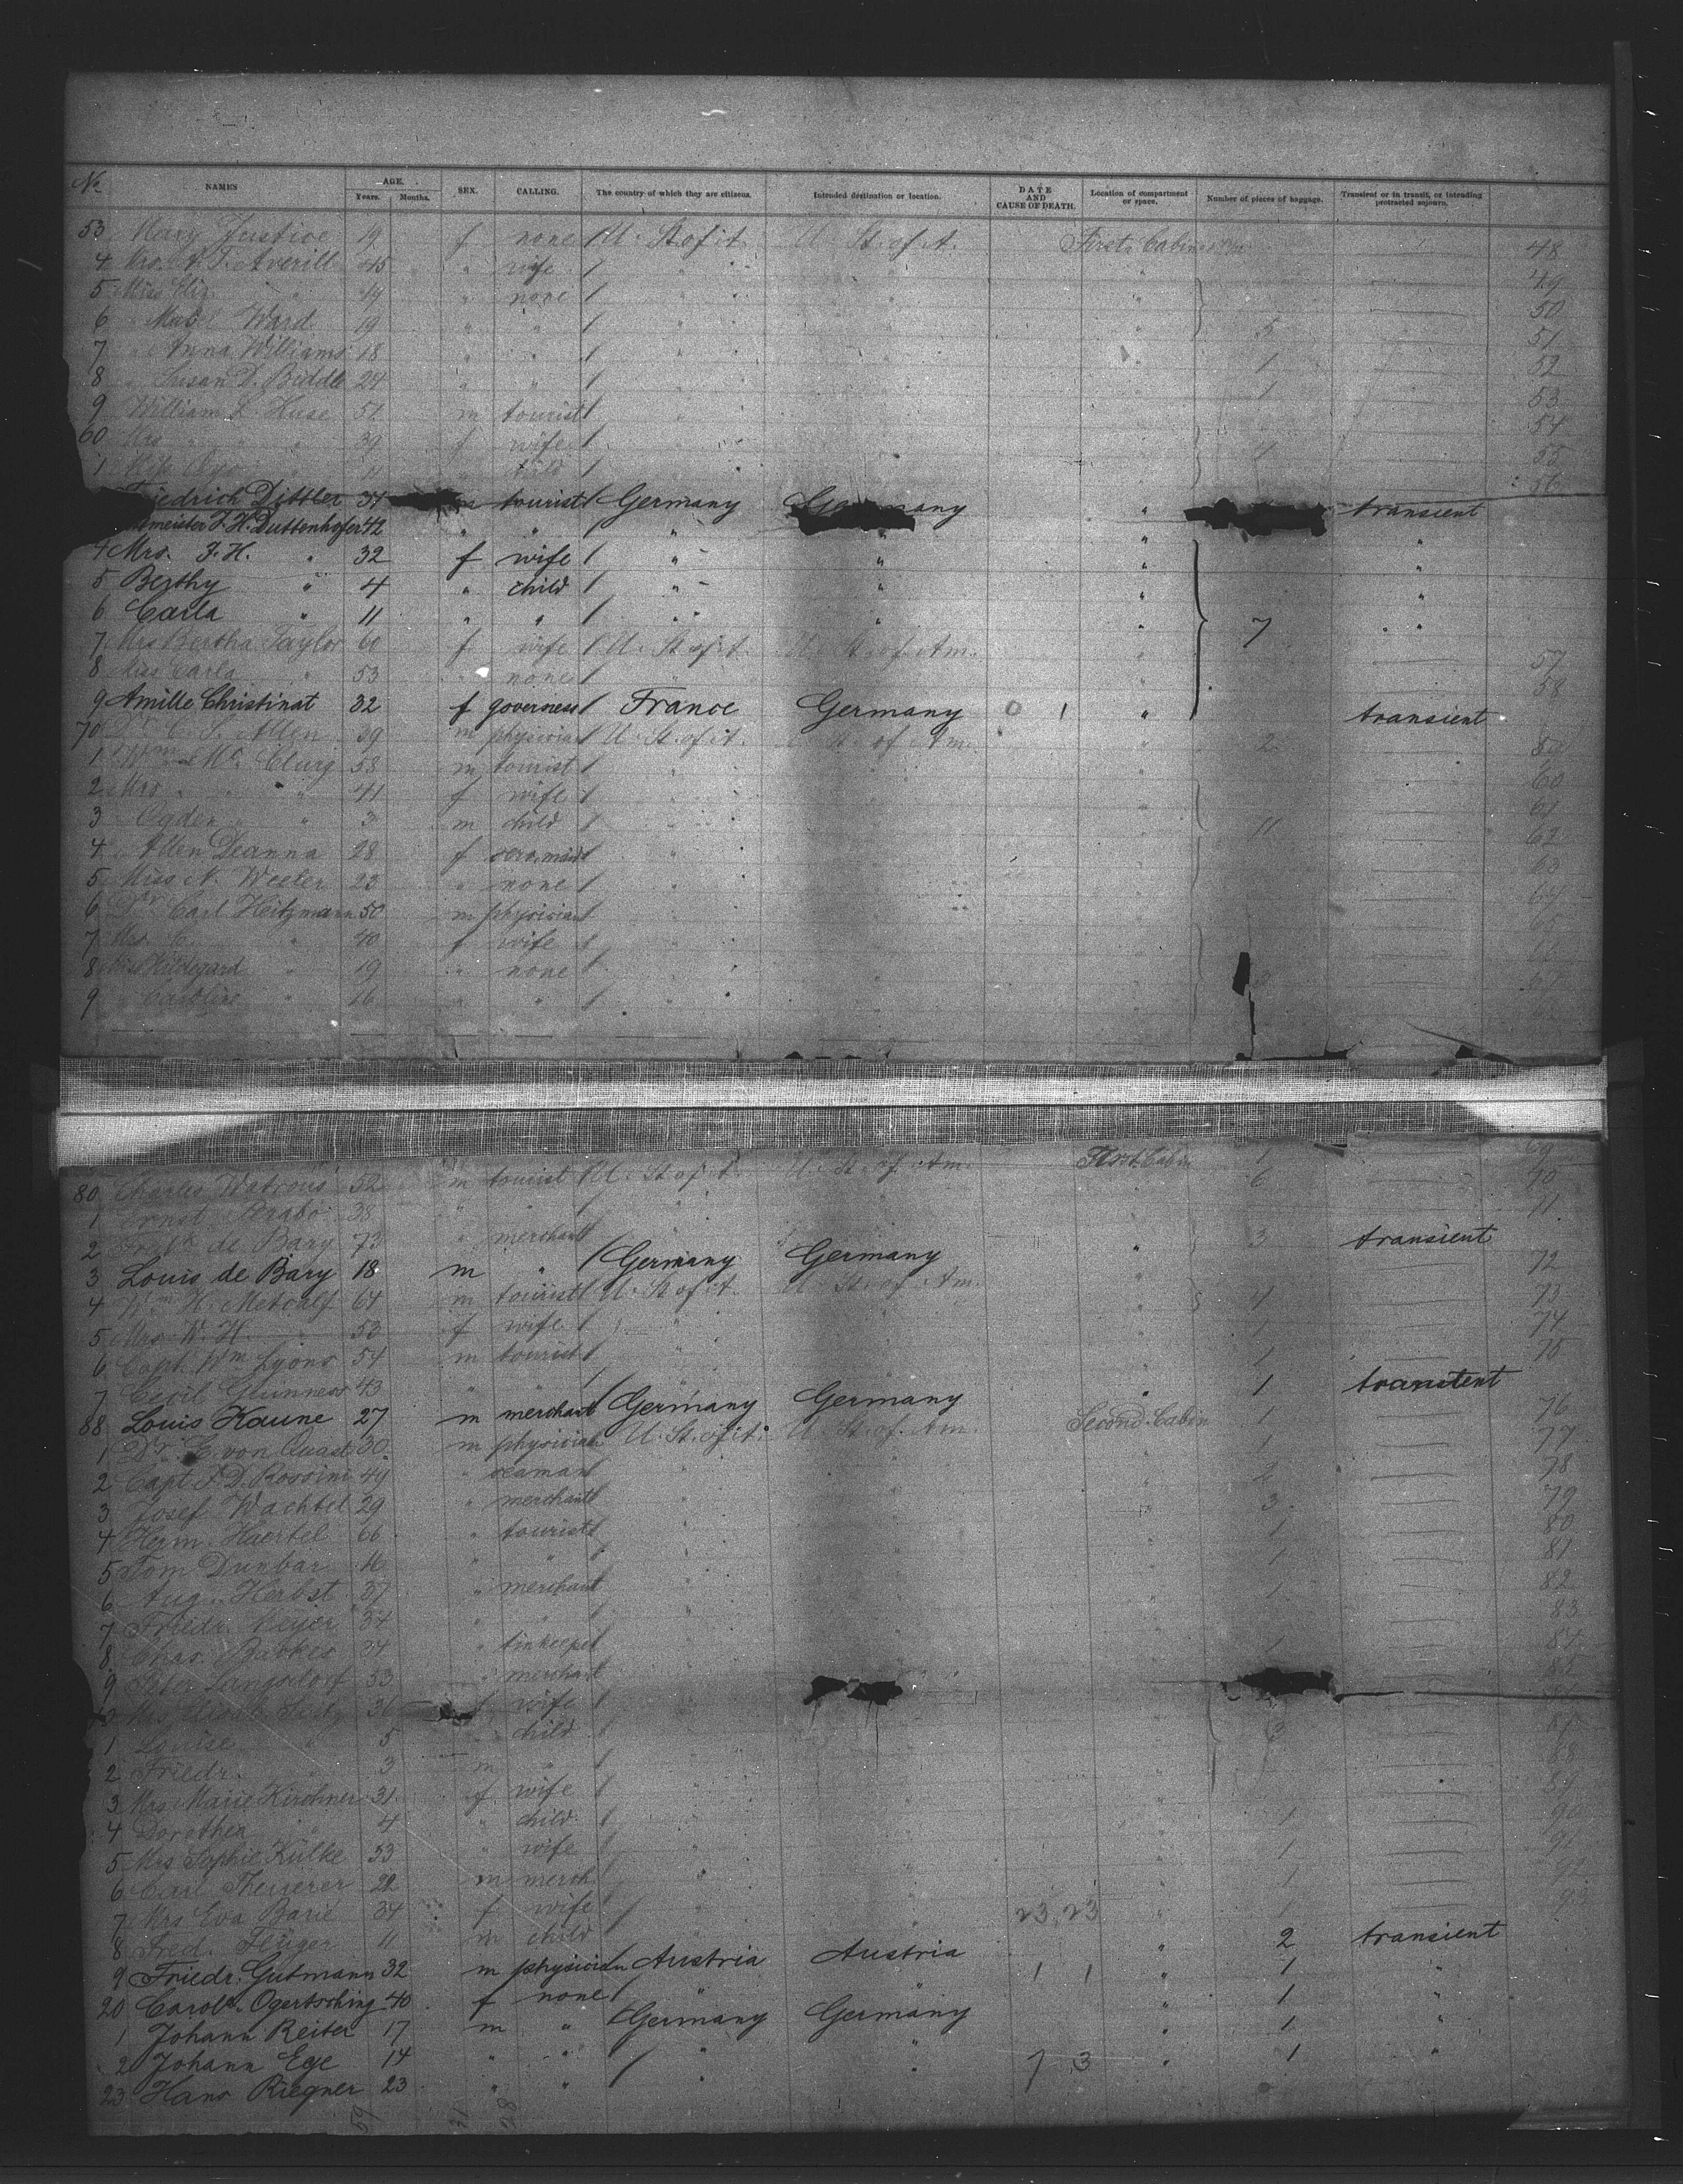 No NAMES AGE. Years. Months. SEX. CALLING. The country of which they are citizens. Intended destination or location. DATE AND CAUSE OF DEATH. Location of compartment or space. Number of pieces of baggage. Transient or in transit, or intending protracted sojourn.
53 Mary Justice 19 f none U. St. of A. U. St. of A. First Cabin 48
4 Mrs. A. T. Averill 45 " wife 49
5 Miss Eliz. " 49 " none 50
6 " Mabel Ward 19 " " 5 51
7 " Anna Williams 18 " " 1 52
8 " Susan D. Biddle 24 " " 1 53
9 William L. Huse 51 m tourist 54
60 Mrs " " 39 f wife 4 55
1 child 56
Friedrich Dittler 34 m tourist Germany Germany " transient
meister F. H. Duttenhofer 42 " " " "
4 Mrs. F. H. " 32 f wife " " " "
5 Berthy " 4 " child " " " "
6 Carla 11 " " " " " 7 "
7 Mrs Bertha Taylor 60 f wife U. St. of A. U. St. of Am. 57
8 Miss Carla " 53 " none 58
9 Amille Christinat 32 f governess France Germany 0 1 " transient
70 Dr. C. S. Allen 39 m physician U. St. of A. U. St. of Am. 2 59
1 Wm Mc Clurg 58 m tourist 60
2 Mrs " " 41 f wife 61
3 Ogden " " 3 m child 11 62
4 Allen Deanna 28 f serv. maid 63
5 Miss N. Weeler 23 " none 64
6 Dr Carl Heitzmann 50 m physician 65
7 Mrs C. " 40 f wife 66
8 Miss Hildegard " 19 " none 3 67
9 " Caroline " 16 " "
80 Charles Watrous 52 m tourist U. St. of A. U. St. of Am. First Cabin 1 69
1 Ernst Perabo 38 " " 6 70
2 Fredk de Bary 73 " merchant 71
3 Louis de Bary 18 m " Germany Germany " 3 transient
4 Wm H. Metcalf 64 m tourist U. St. of A. U. St. of Am. 4 72
5 Mrs W. H. " 53 f wife 73
6 Capt. Wm Lyons 54 m tourist 1 74
7 Cecil Guinness 43 " " 1 75
88 Louis Kaune 27 m merchant Germany Germany " 1 transient
1 Dr. E. von Quast 30 m physician U. St. of A. U. St. of Am. Second Cabin 1 76
2 Capt. F. D. Rossini 49 " seaman 1 77
3 Josef Wachtel 29 " merchant 2 78
4 Herm. Haertel 66 " tourist 3 79
5 Tom Dunbar 16 " " 1 80
6 Aug. Herbst 37 " merchant 1 81
7 Friedr. Meyer 34 " " 1 82
8 Chas. Backes 34 " innkeeper 83
9 Peter Langsdorf 53 " merchant 1 84
36 f wife 85
1 Louise " 5 " child
2 Friedr. " 3 m " 3 87
3 Mrs Marie Kirchner 31 f wife 88
4 Dorothea " 4 " child 89
5 Mrs Sophie Külke 53 " wife 1 90
6 Carl Theuerer 22 m merch 1 91
7 Mrs Eva Barie 34 f wife 1 92
8 Fred. Flüger 11 m child 23 23 1 93
9 Friedr. Gutmann 32 m physician Austria Austria " 2 transient
20 Carole. Ogertsching 40 f none " " 1 1 " 1 "
1 Johann Reiter 17 m " Germany Germany " 1 "
2 Johann Ege 14 " " " " " 1 "
23 Hans Riegner 23 " " " " 7 3 " 1 "
59 31 28